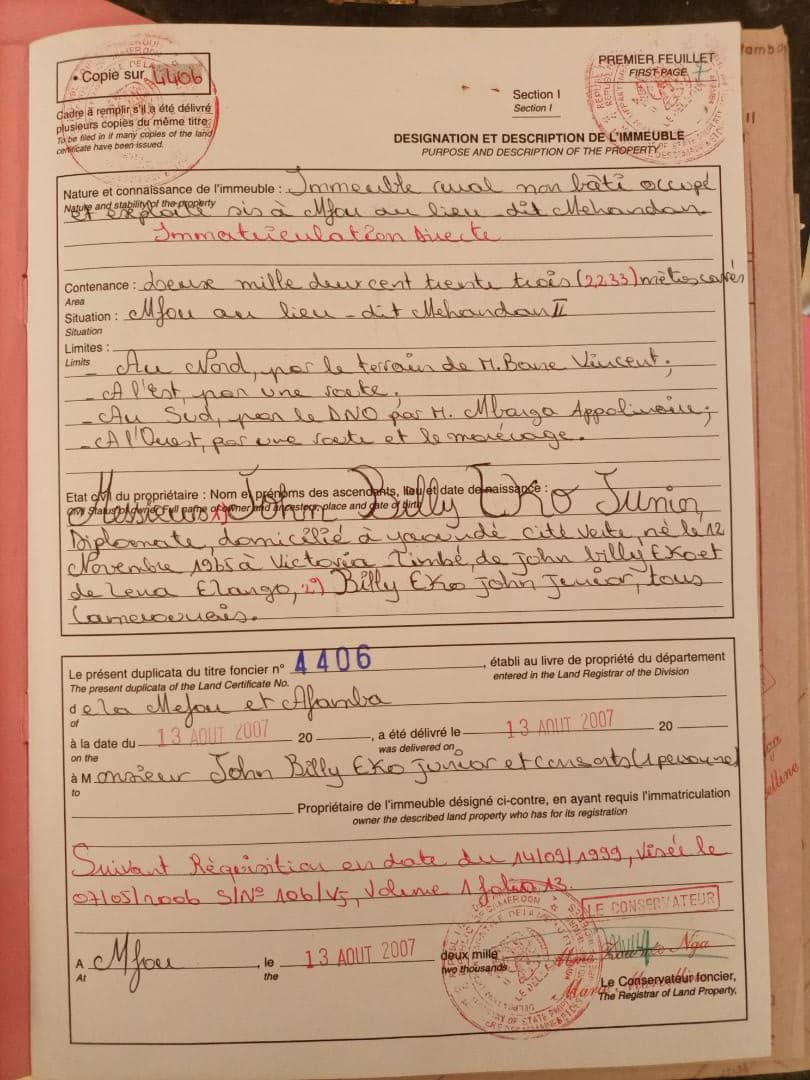 • Copie sur 4406
Cadre à remplir s'il a été délivré
plusieurs copies du même titre.
To be filed in it many copies of the land
certificate have been issued.
PREMIER FEUILLET
FIRST PAGE 7
Section I
Section I
DESIGNATION ET DESCRIPTION DE L'IMMEUBLE
PURPOSE AND DESCRIPTION OF THE PROPERTY
Nature et connaissance de l'immeuble : Immeuble rural non bâti occupé
Nature and stability of the property
et exploité sis à Mfou au lieu-dit Mehandan
Immatriculation Directe
Contenance : deux mille deux cent trente trois (2233) mètres carrés
Area
Situation : Mfou au lieu-dit Mehandan II
Situation
Limites :
Limits
- Au Nord, par le terrain de M. Bane Vincent;
- A l'Est, par une route;
- Au Sud, par le DNO par M. Mbarga Appolinaire;
- A l'Ouest, par une route et le marécage.
Etat civil du propriétaire : Nom et prénoms des ascendants, lieu et date de naissance :
Civil Status of owner Full name of owner and ancestor, place and date of birth
Messieurs 1) John Billy Eko Junior,
Diplomate, domicilié à yaoundé cité verte, né le 12
Novembre 1965 à Victoria Limbé, de John billy Eko et
de Lena Elango, 2) Billy Eko John Junior, tous
Camerounais.
Le présent duplicata du titre foncier n° 4406, établi au livre de propriété du département
The present duplicata of the Land Certificate No. entered in the Land Registrar of the Division
de la Mefou et Afamba
of
à la date du 13 AOUT 2007 20, a été délivré le 13 AOUT 2007 20
on the was delivered on
à Monsieur John Billy Eko Junior et Consorts (1 personne)
to
Propriétaire de l'immeuble désigné ci-contre, en ayant requis l'immatriculation
owner the described land property who has for its registration
Suivant Réquisition en date du 14/09/1999, Visée le
07/05/2006 S/N° 106/V5, Volume 1 folio 13.
LE CONSERVATEUR
A Mfou, le 13 AOUT 2007 deux mille
At the two thousands
Le Conservateur foncier,
The Registrar of Land Property,